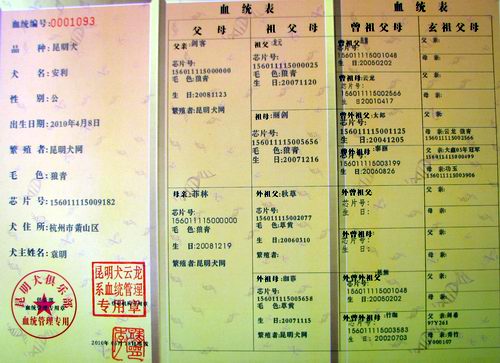 血统编号:0001093
品 种:昆明犬
犬 名:安利
性 别:公
出生日期:2010年4月8日
繁 殖 者:昆明犬网
毛 色:狼青
芯 片 号:156011115009182
犬 住 所:杭州市萧山区
犬主姓名:袁明
昆明犬俱乐部
血统管理专用
昆明犬云龙
系血统管理
专用章
血统表
父母
父亲:剑客
芯片号:
156011115000000
毛 色:狼青
生 日:20081123
繁殖者:昆明犬网
母亲:菲林
芯片号:
156011115000000
毛 色:狼青
生 日:20081219
繁殖者:昆明犬网
祖父母
祖父:
芯片号:
156011115000025
毛 色:狼青
生 日:20071120
祖母:丽剑
芯片号:
156011115005656
毛 色:狼青
生 日:20071216
外祖父:秋草
芯片号:
156011115002077
毛 色:草黄
生 日:20060310
繁殖者:
外祖母:咖菲
芯片号:
156011115005658
毛 色:草黄
生 日:20071115
繁殖者:昆明犬网
血统表
曾祖父母
曾祖父:
芯片号:
156011115001048
生 日:20050202
曾祖母:云龙
芯片号:
156011115002566
生 日20010417
曾外祖父:太郎
芯片号:
156011115001125
生 日:20041205
曾外祖母:
芯片号:
156011115003199
生 日:20060826
外曾祖父
芯片号:
生 日:
外曾祖母
芯片号:
生 日:
外曾外祖父:
芯片号:
156011115001048
生 日:20050202
外曾外祖母:
芯片号:
156011115003583
生 日:
玄祖父母
父 亲:
母 亲:
父 亲:
母 亲:
父 亲:
母 亲:云龙 狼青
156011115002566
父 亲:大鑫05年冠军
母 亲:功玉
156011115003906
父 亲:
母 亲:
父 亲:
母 亲:
父 亲:
母 亲:
父 亲:
97Y261
母 亲:
Y000107